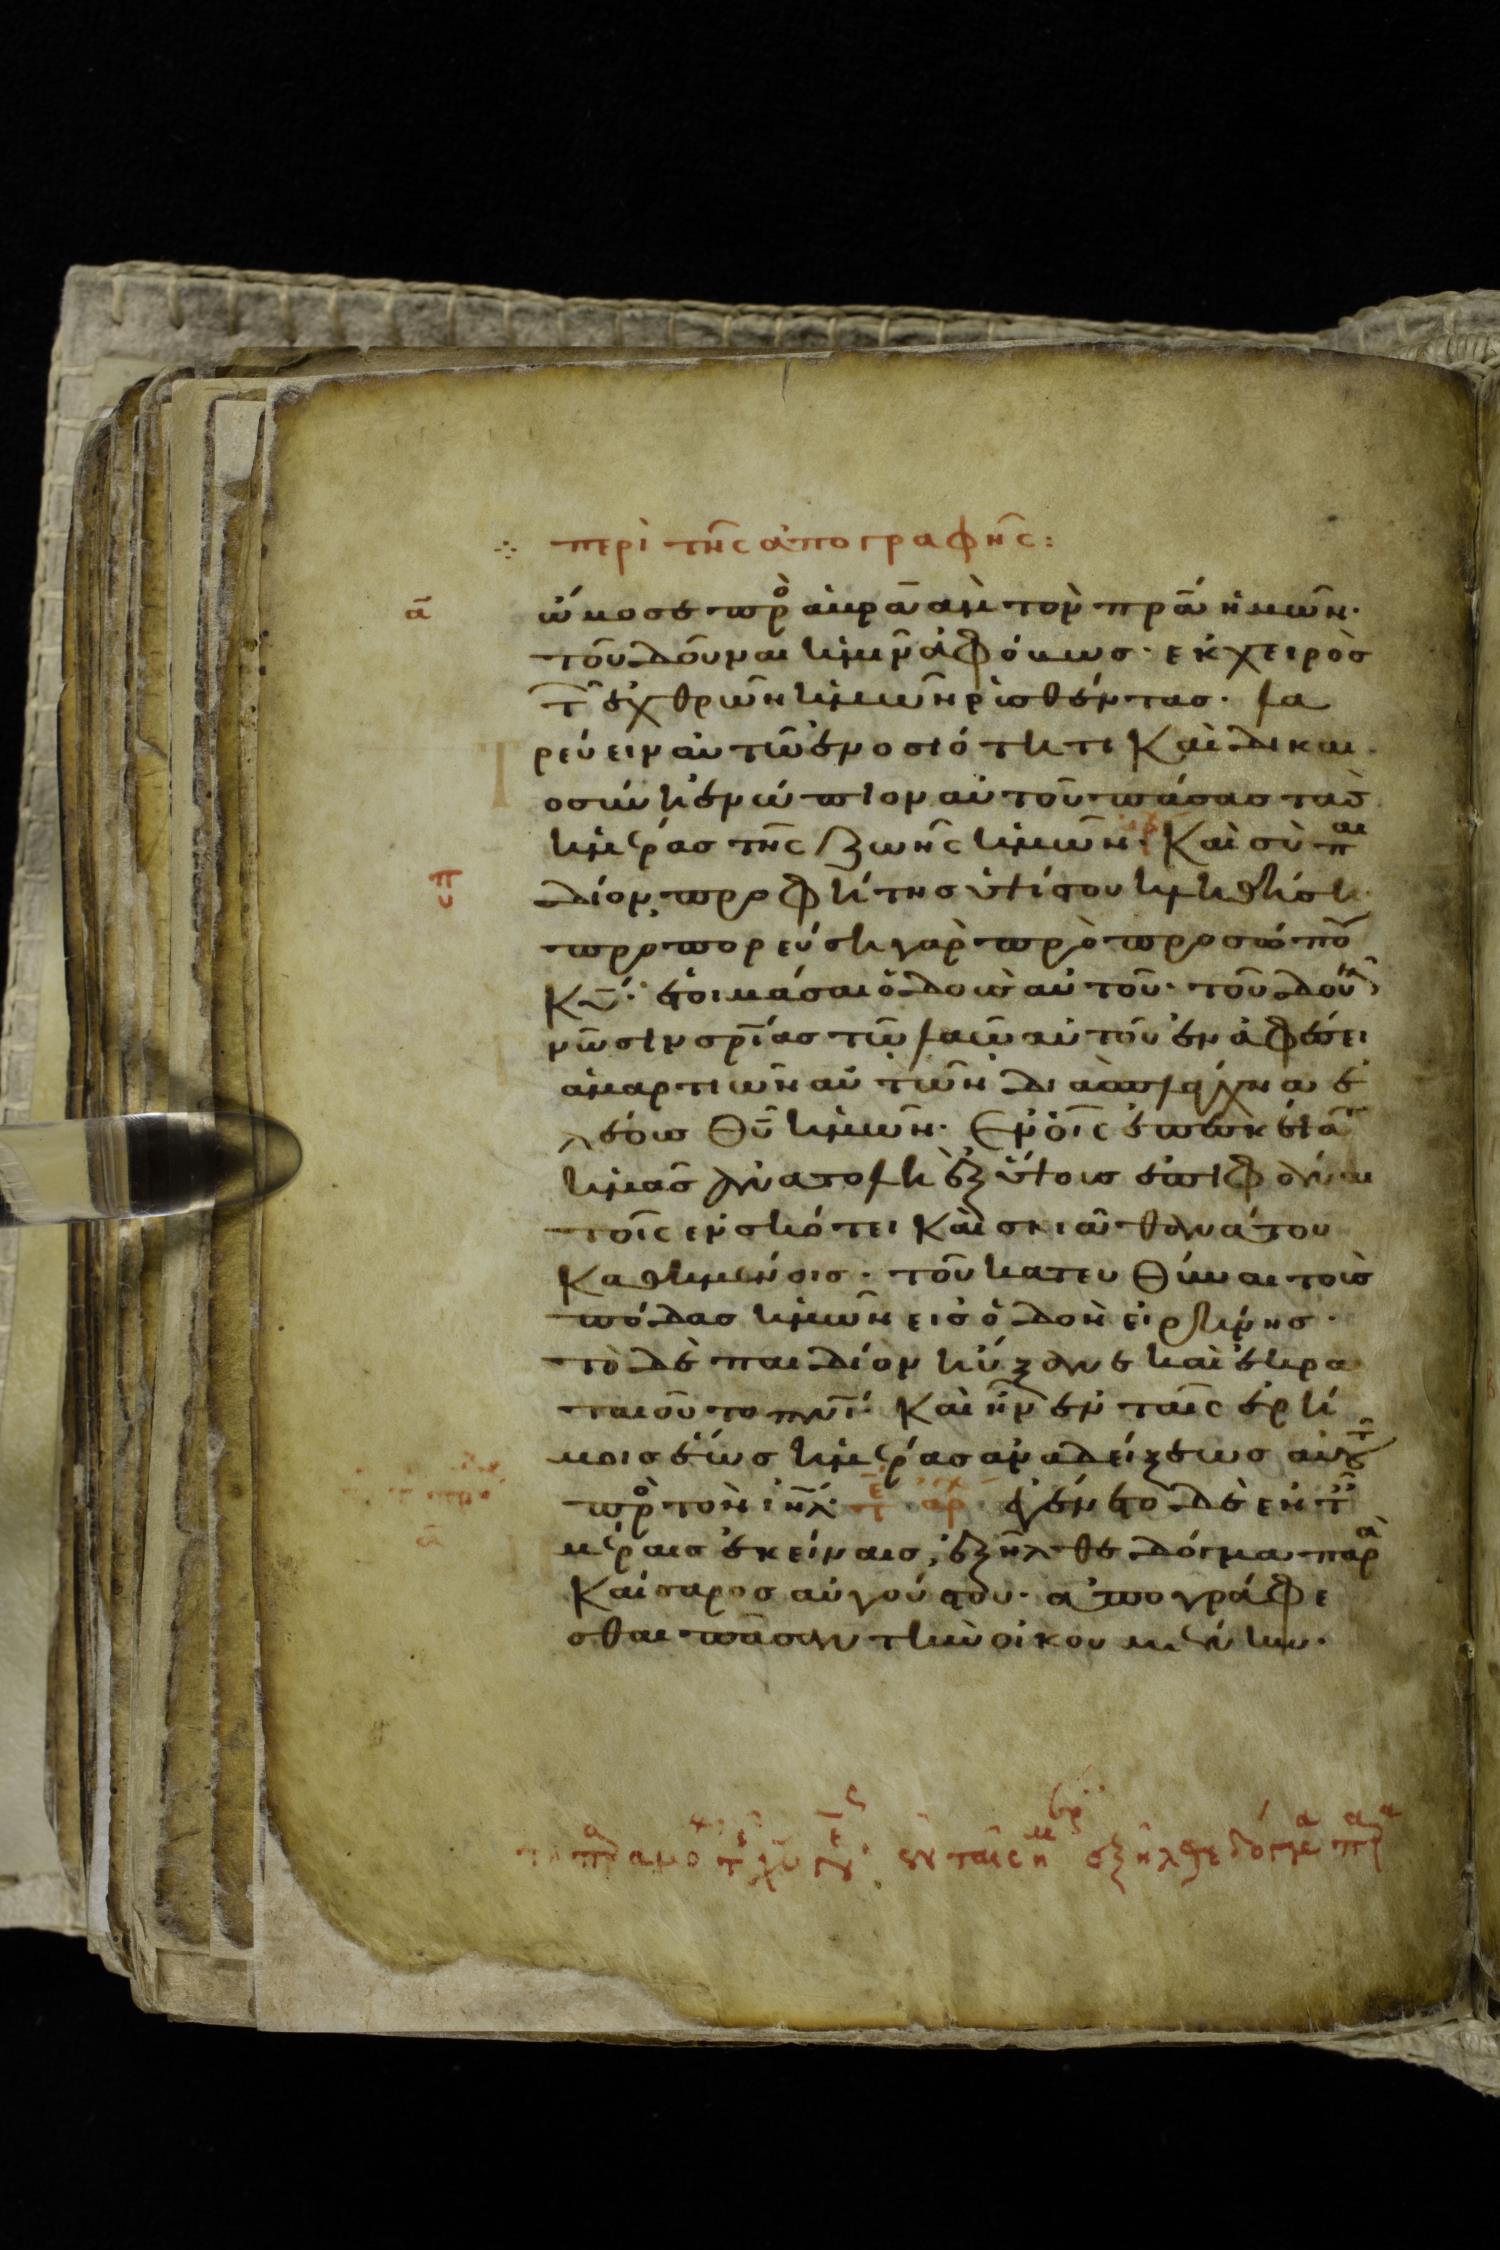 περὶ τῆς ἀπογραφῆς:
α
ὤμοσε πρὸ ἀβραὰμ τὸν πρα ἡμῶν·
τοῦ δοῦναι ἡμῖν ἀφόβως· ἐκ χειρὸς
τ ἐχθρῶν ἡμῶν ρισθέντας· λα
ρεύειν αὐτῶ ἐν ὁσιότητι καὶ δικαι
οσύνη ἐνώπιον αὐτοῦ πάσας τὰς
ἡμέρας τῆς ζωῆς ἡμῶν· Καὶ σὺ παι
δίον, προφήτης ὑψίστου κληθήση
προπορεύση γὰρ πρὸ προσώπου
κυ· ἑτοιμάσαι ὁδοὺς αὐτοῦ· τοῦ δοῦν
γνῶσιν σρίας τῶ λαῶ αὐτοῦ ἐν ἀφέσει
ἁμαρτιῶν αὐτῶν διὰ σπλάχνα ἐ
λέους θυ ἡμῶν· ἐν οἷς ἐπεσκέψα
ἡμᾶς ἀνατολὴ ἐξ ὕψους ἐπιφᾶναι
τοῖς ἐν σκότει καὶ σκιᾶ θανάτου
καθημένοις· τοῦ κατευθύναι τοὺς
πόδας ἡμῶν εἰς ὁδὸν εἰρήνης·
τὸ δὲ παιδίον ηὔξανε καὶ ἐκρα
ταιοῦτο πνι· Καὶ ἦν ἐν ταῖς ἐρή
μοις ἕως ἡμέρας ἀναδείξεως αὐτ
πρὸ τὸν ιηλ· τε αρχ ἐγένετο δὲ ἐν τ
μέραις ἐκείναις, ἐξῆλθε δόγμα παρὰ
Καίσαρος αὐγούστου· ἀπογράφε
σθαι πᾶσαν τὴν οἰκουμένην·
ἐν ταῖς ημερ ἐξῆλθε δόγμα παρα